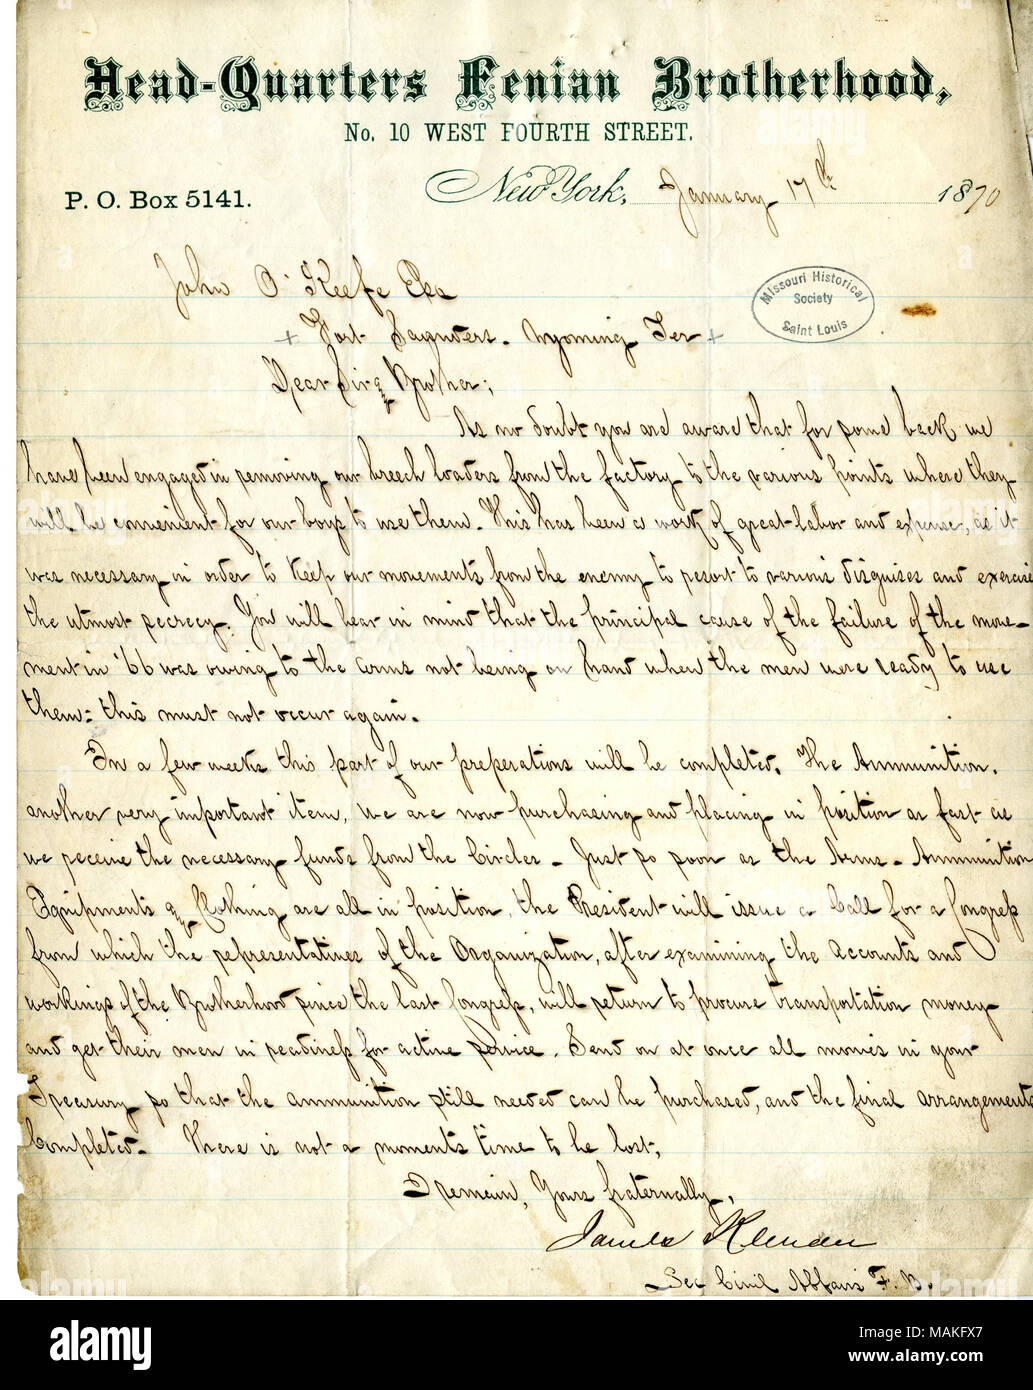 Head-Quarters Fenian Brotherhood,
No. 10 WEST FOURTH STREET.
P. O. Box 5141.
New York, January 17th 1870
Missouri Historical
Society
Saint Louis
John O'Keefe Esq
+ Fort Saunders. Wyoming Ter +
Dear Sir & Brother;
As no doubt you are aware that for some back we
have been engaged in removing our breech loaders from the factory to the various points where they
will be convenient for our boys to use them. This has been a work of great labor and expense, as it
was necessary in order to keep our movements from the enemy to resort to various disguises and exercise
the utmost secrecy. You will bear in mind that the principal cause of the failure of the move-
ment in '66 was owing to the arms not being on hand when the men were ready to use
them: this must not occur again.
In a few weeks this part of our preperations will be completed. The Ammunition,
another very important item, we are now purchasing and placing in position as fast as
we receive the necessary funds from the Circles - Just so soon as the Arms - Ammunition
Equipments and Clothing are all in position, the President will issue a Call for a Congress
from which the representatives of the Organization, after examining the accounts and
workings of the Brotherhood since the last Congress, will return to procure transportation money
and get their men in readiness for active service. Send on at once all monies in your
Treasury so that the ammunition still needed can be purchased, and the final arrangements
Completed. There is not a moments time to be lost,
I remain, Yours fraternally,
James Keenan
Sec Civil Affairs F. B.
alamy
Image ID: MAKFX7
www.alamy.com